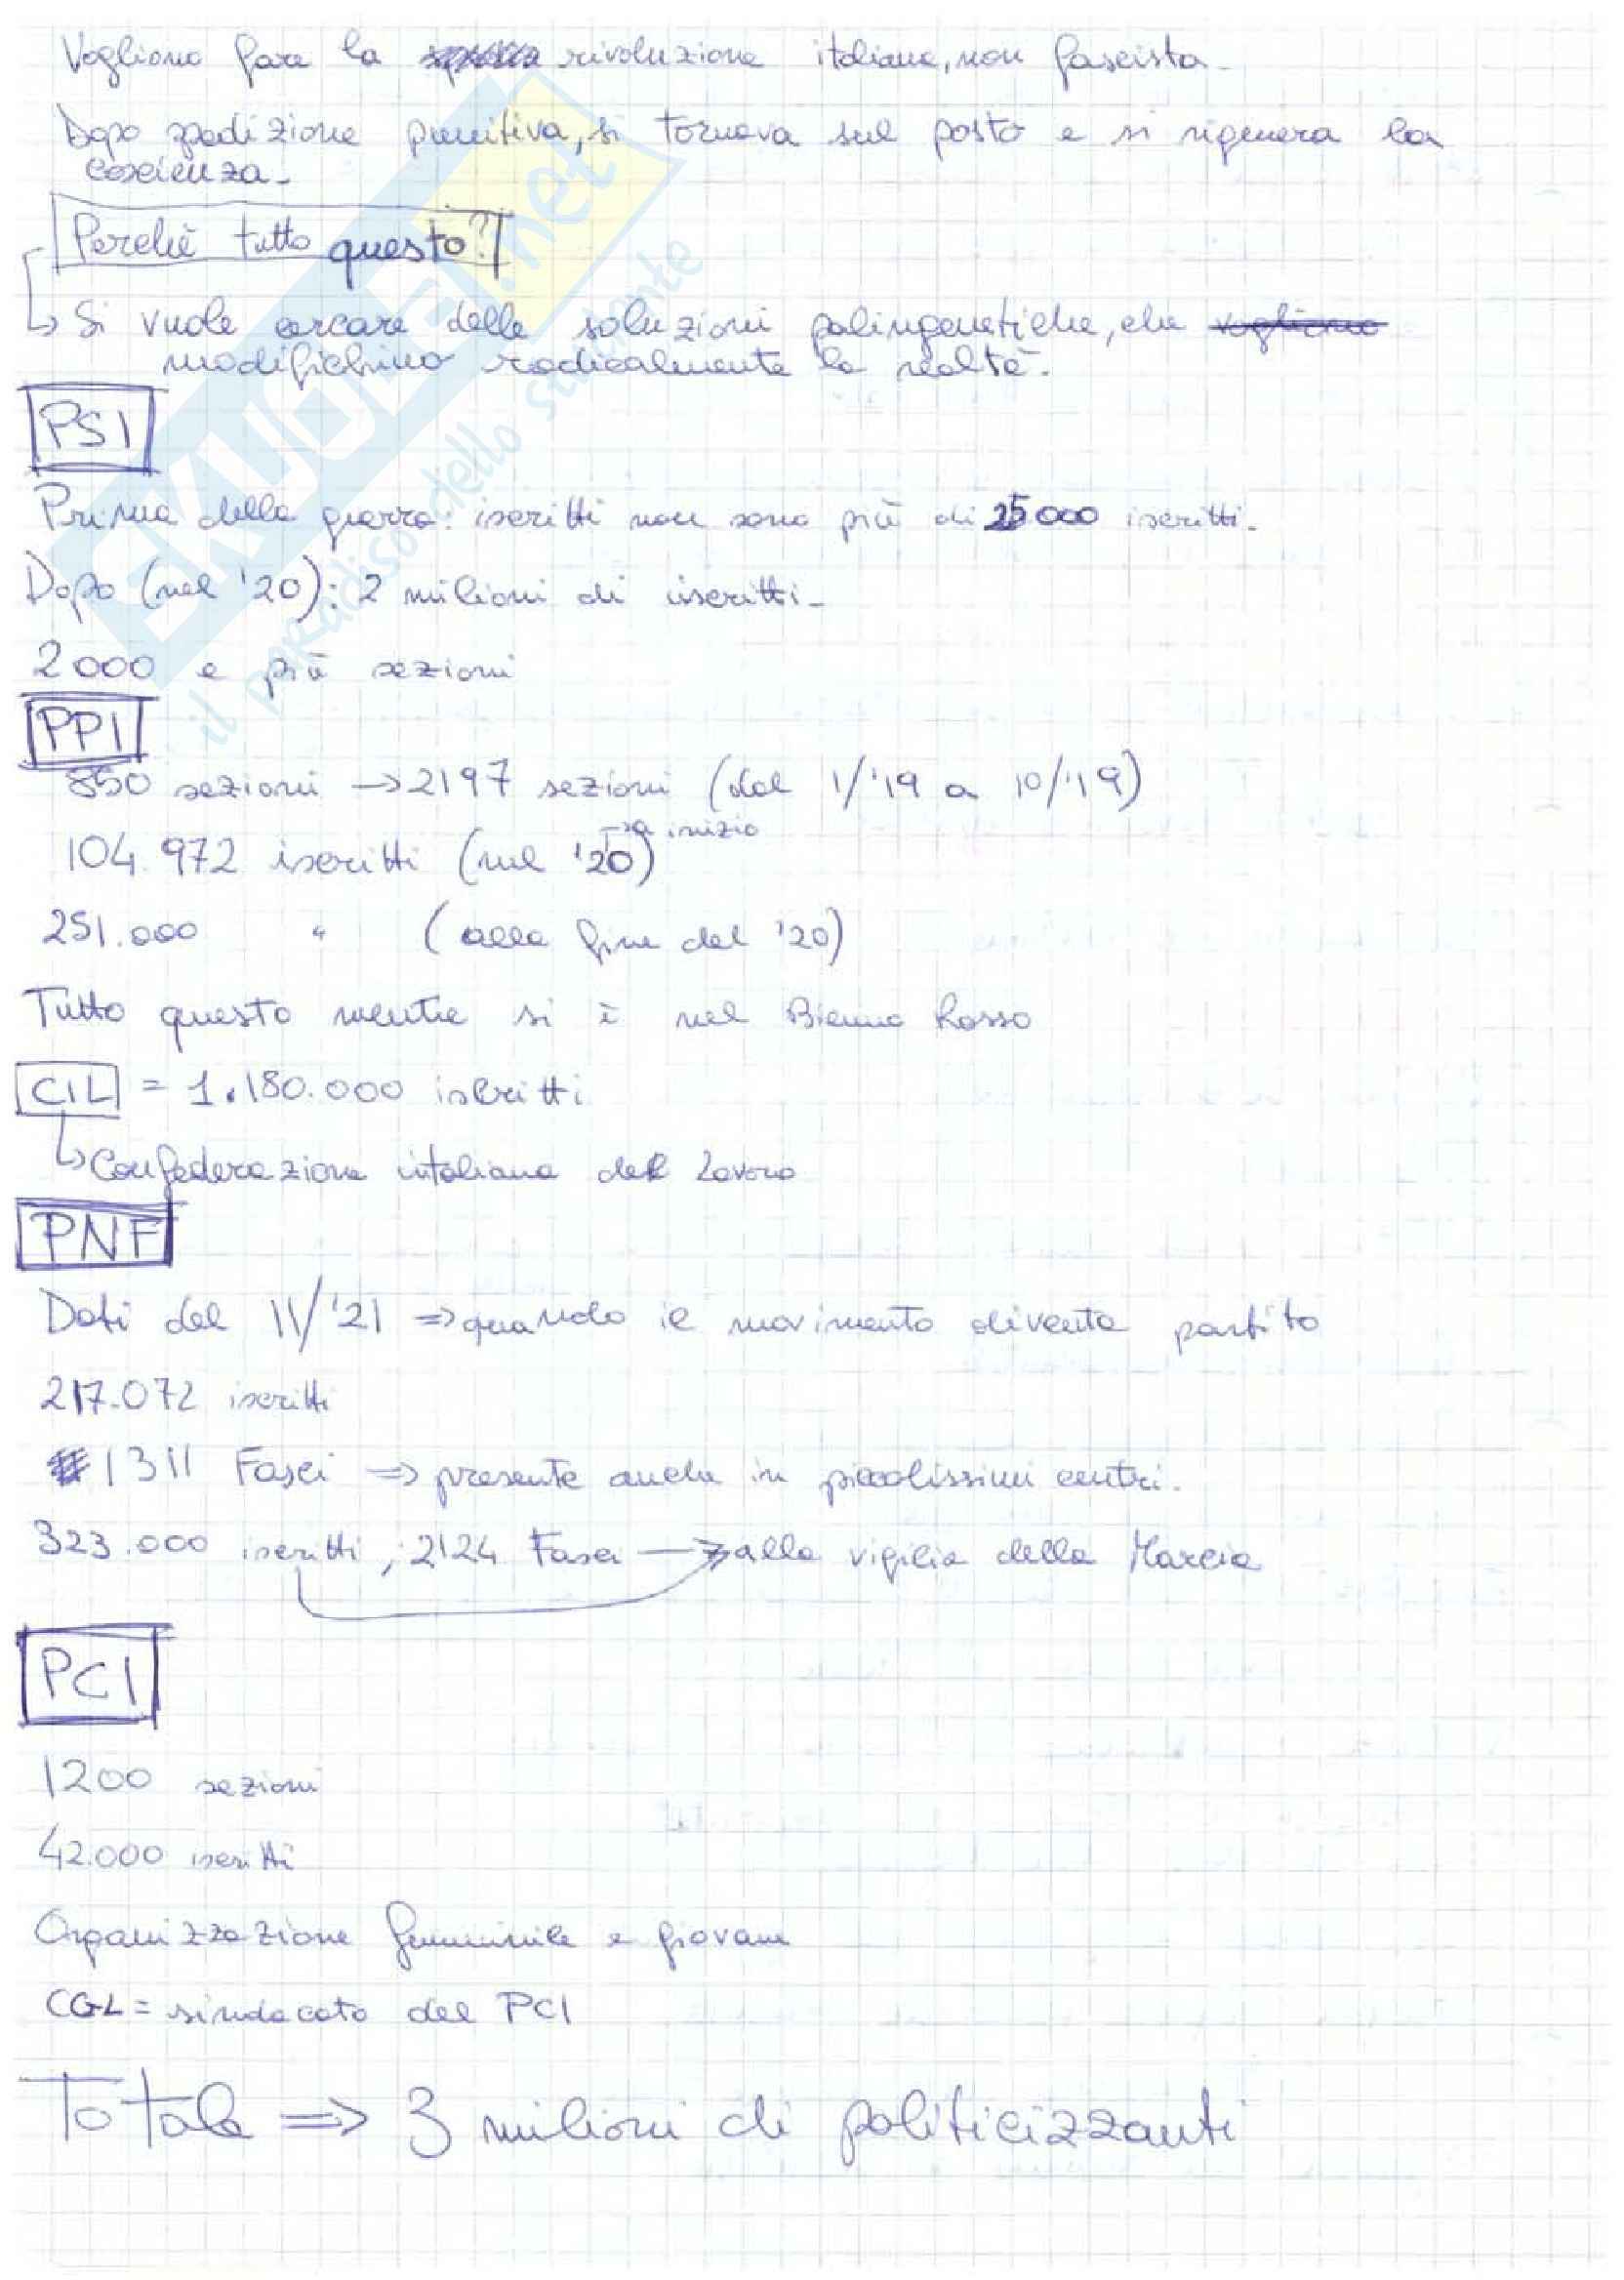 Vogliono fare la rivoluzione italiana, non fascista.
Dopo spedizione punitiva, si tornava sul posto e si rigenera la
coscienza.
Perchè tutto questo?
↳ Si vuole cercare delle soluzioni palingenetiche, che vogliono
modifichino radicalmente la realtà.
PSI
Prima della guerra: iscritti non sono più di 25000 iscritti.
Dopo (nel '20): 2 milioni di iscritti.
2000 e più sezioni
PPI
850 sezioni → 2197 sezioni (dal 1/'19 a 10/'19)
→ a inizio
104.972 iscritti (nel '20)
251.000 " (alla fine del '20)
Tutto questo mentre si è nel Biennio Rosso
CIL = 1.180.000 iscritti
↳ Confederazione intaliana del Lavoro
PNF
Dati del 11/'21 ⇒ quando il movimento diventa partito
217.072 iscritti
1311 Fasci ⇒ presente anche in piccolissimi centri.
323.000 iscritti, 2124 Fasci → alla vigilia della Marcia
PCI
1200 sezioni
42.000 iscritti
Organizzazione femminile e giovani
CGL = sindacato del PCI
Totale ⇒ 3 milioni di politicizzanti
SKUOLA.net
il paradiso dello studente